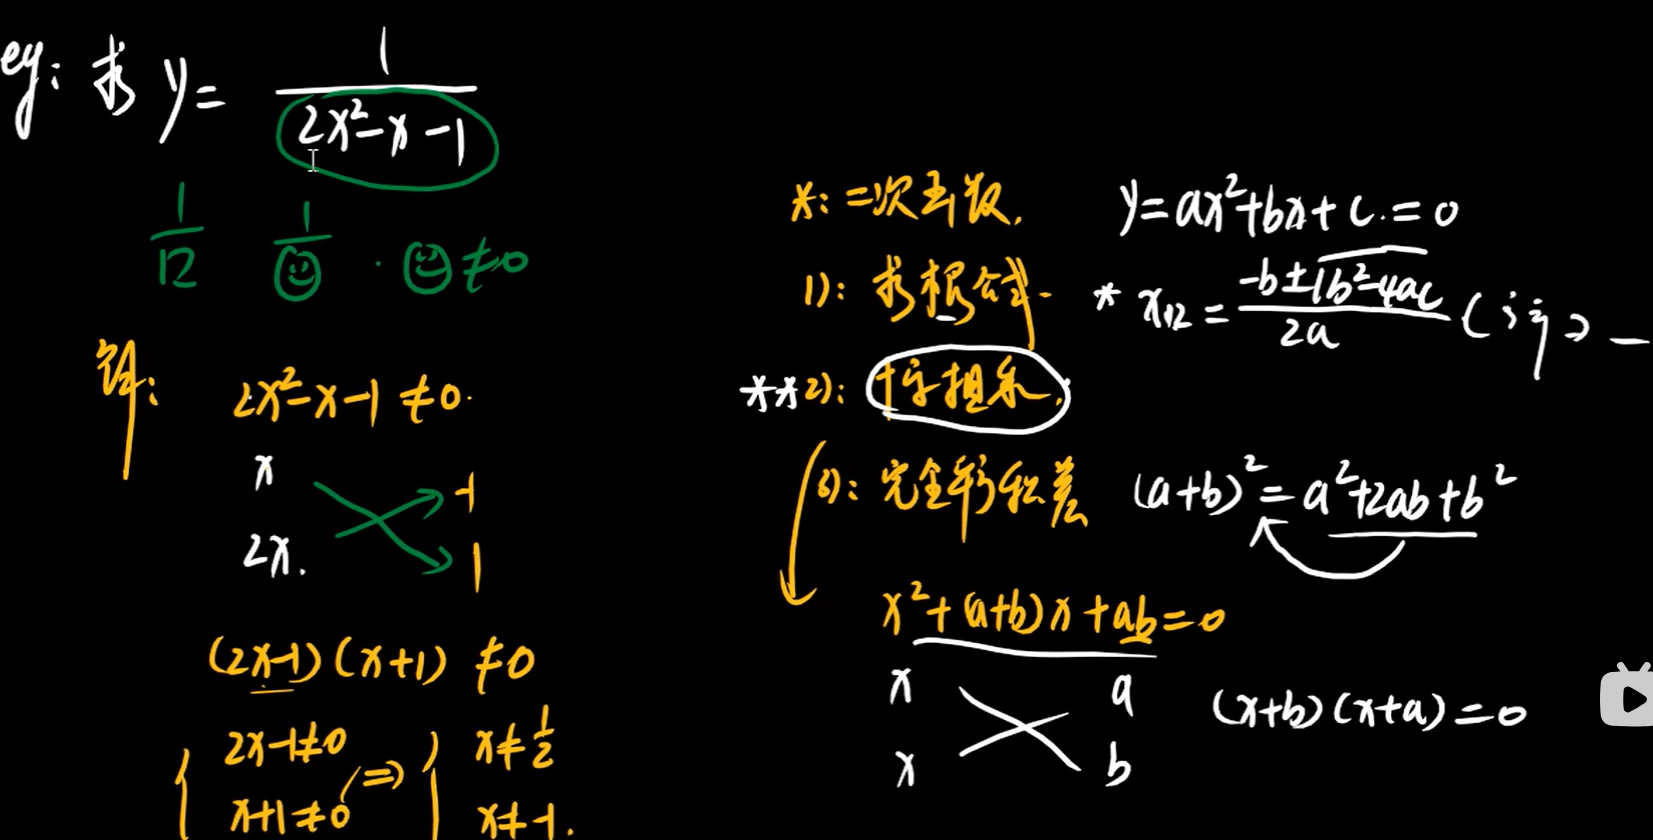 eg: 求 y = 1/(2x²-x-1)
1/12 1/☺ · ☺≠0
解: 2x²-x-1≠0.
x -1
2x. 1
(2x-1)(x+1)≠0
{ 2x-1≠0 => { x≠1/2
x+1≠0 x≠-1.
*: 二次函数. y=ax²+bx+c.=0
1): 求根公式. * x₁,₂ = (-b±√(b²-4ac))/2a
**2): 十字相乘.
3): 完全平方和差 (a+b)²=a²+2ab+b²
x²+(a+b)x+ab=0
x a
x b
(x+b)(x+a)=0